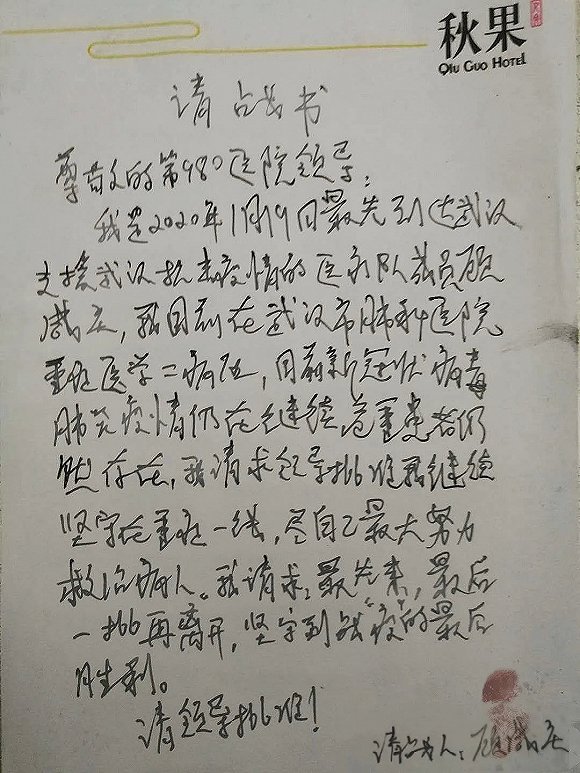 秋果
QIU GUO HOTEL
请占战书
尊敬的第980医院领导：
我是2020年1月19日最先到达武汉
支援武汉抗击疫情的医疗队成员顾
我目前在武汉市肺科医院
重症医学二病区，目前新冠状病毒
肺炎疫情仍在继续 危重患者仍
然存在，我请求领导批准我继续
坚守在重症一线，尽自己最大努力
救治病人。我请求：最先来，最后
一批再离开，坚守到战“疫”的最后
胜利。
请领导批准！
请战人：顾